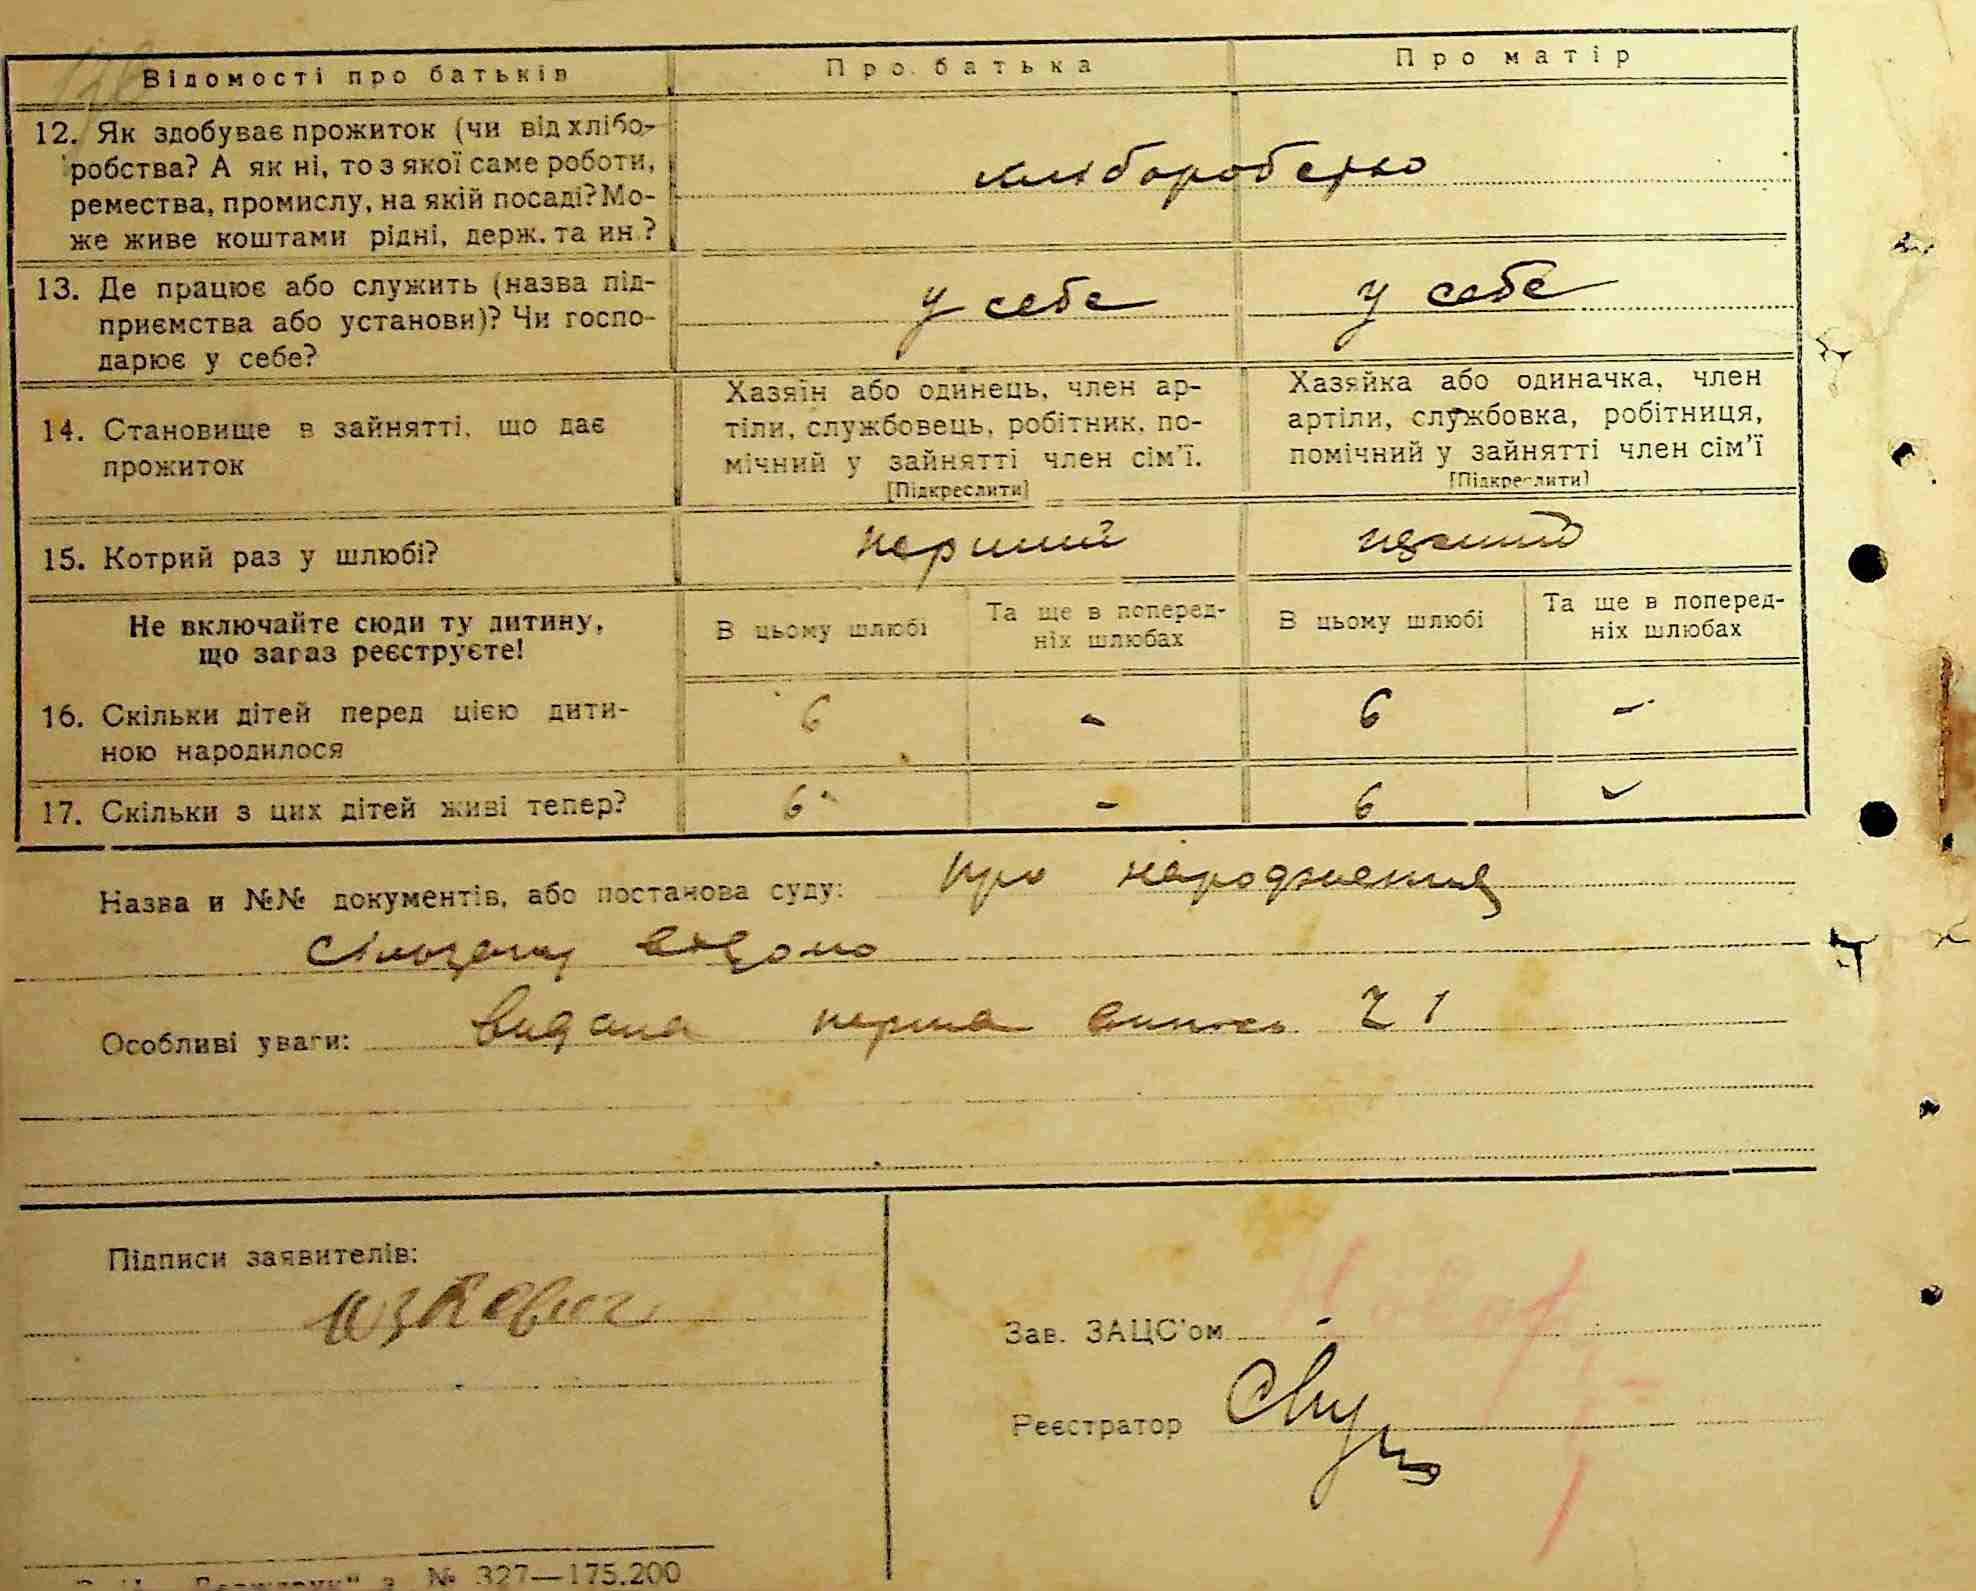 Відомості про батьків
Про батька
Про матір
12. Як здобуває прожиток (чи від хлібо-
робства? А як ні, то з якої саме роботи,
ремества, промислу, на якій посаді? Мо-
же живе коштами рідні, держ. та ин.?
хліборобство
13. Де працює або служить (назва під-
приємства або установи)? Чи госпо-
дарює у себе?
у себе
у себе
14. Становище в зайнятті, що дає
прожиток
Хазяїн або одинець, член ар-
тіли, службовець, робітник, по-
мічний у зайнятті член сім'ї.
[Підкреслити]
Хазяйка або одиначка, член
артіли, службовка, робітниця,
помічний у зайнятті член сім'ї
[Підкреслити]
15. Котрий раз у шлюбі?
перший
перший
Не включайте сюди ту дитину,
що зараз реєструєте!
В цьому шлюбі
Та ще в поперед-
ніх шлюбах
В цьому шлюбі
Та ще в поперед-
ніх шлюбах
16. Скільки дітей перед цією дити-
ною народилося
6 - 6 -
17. Скільки з цих дітей живі тепер?
6 - 6 -
Назва и №№ документів, або постанова суду: про народження
сільраді відомо
Особливі уваги: видана перша випись Ч 1
Підписи заявителів:
Зав. ЗАЦС'ом
Реєстратор
№ 327—175.200